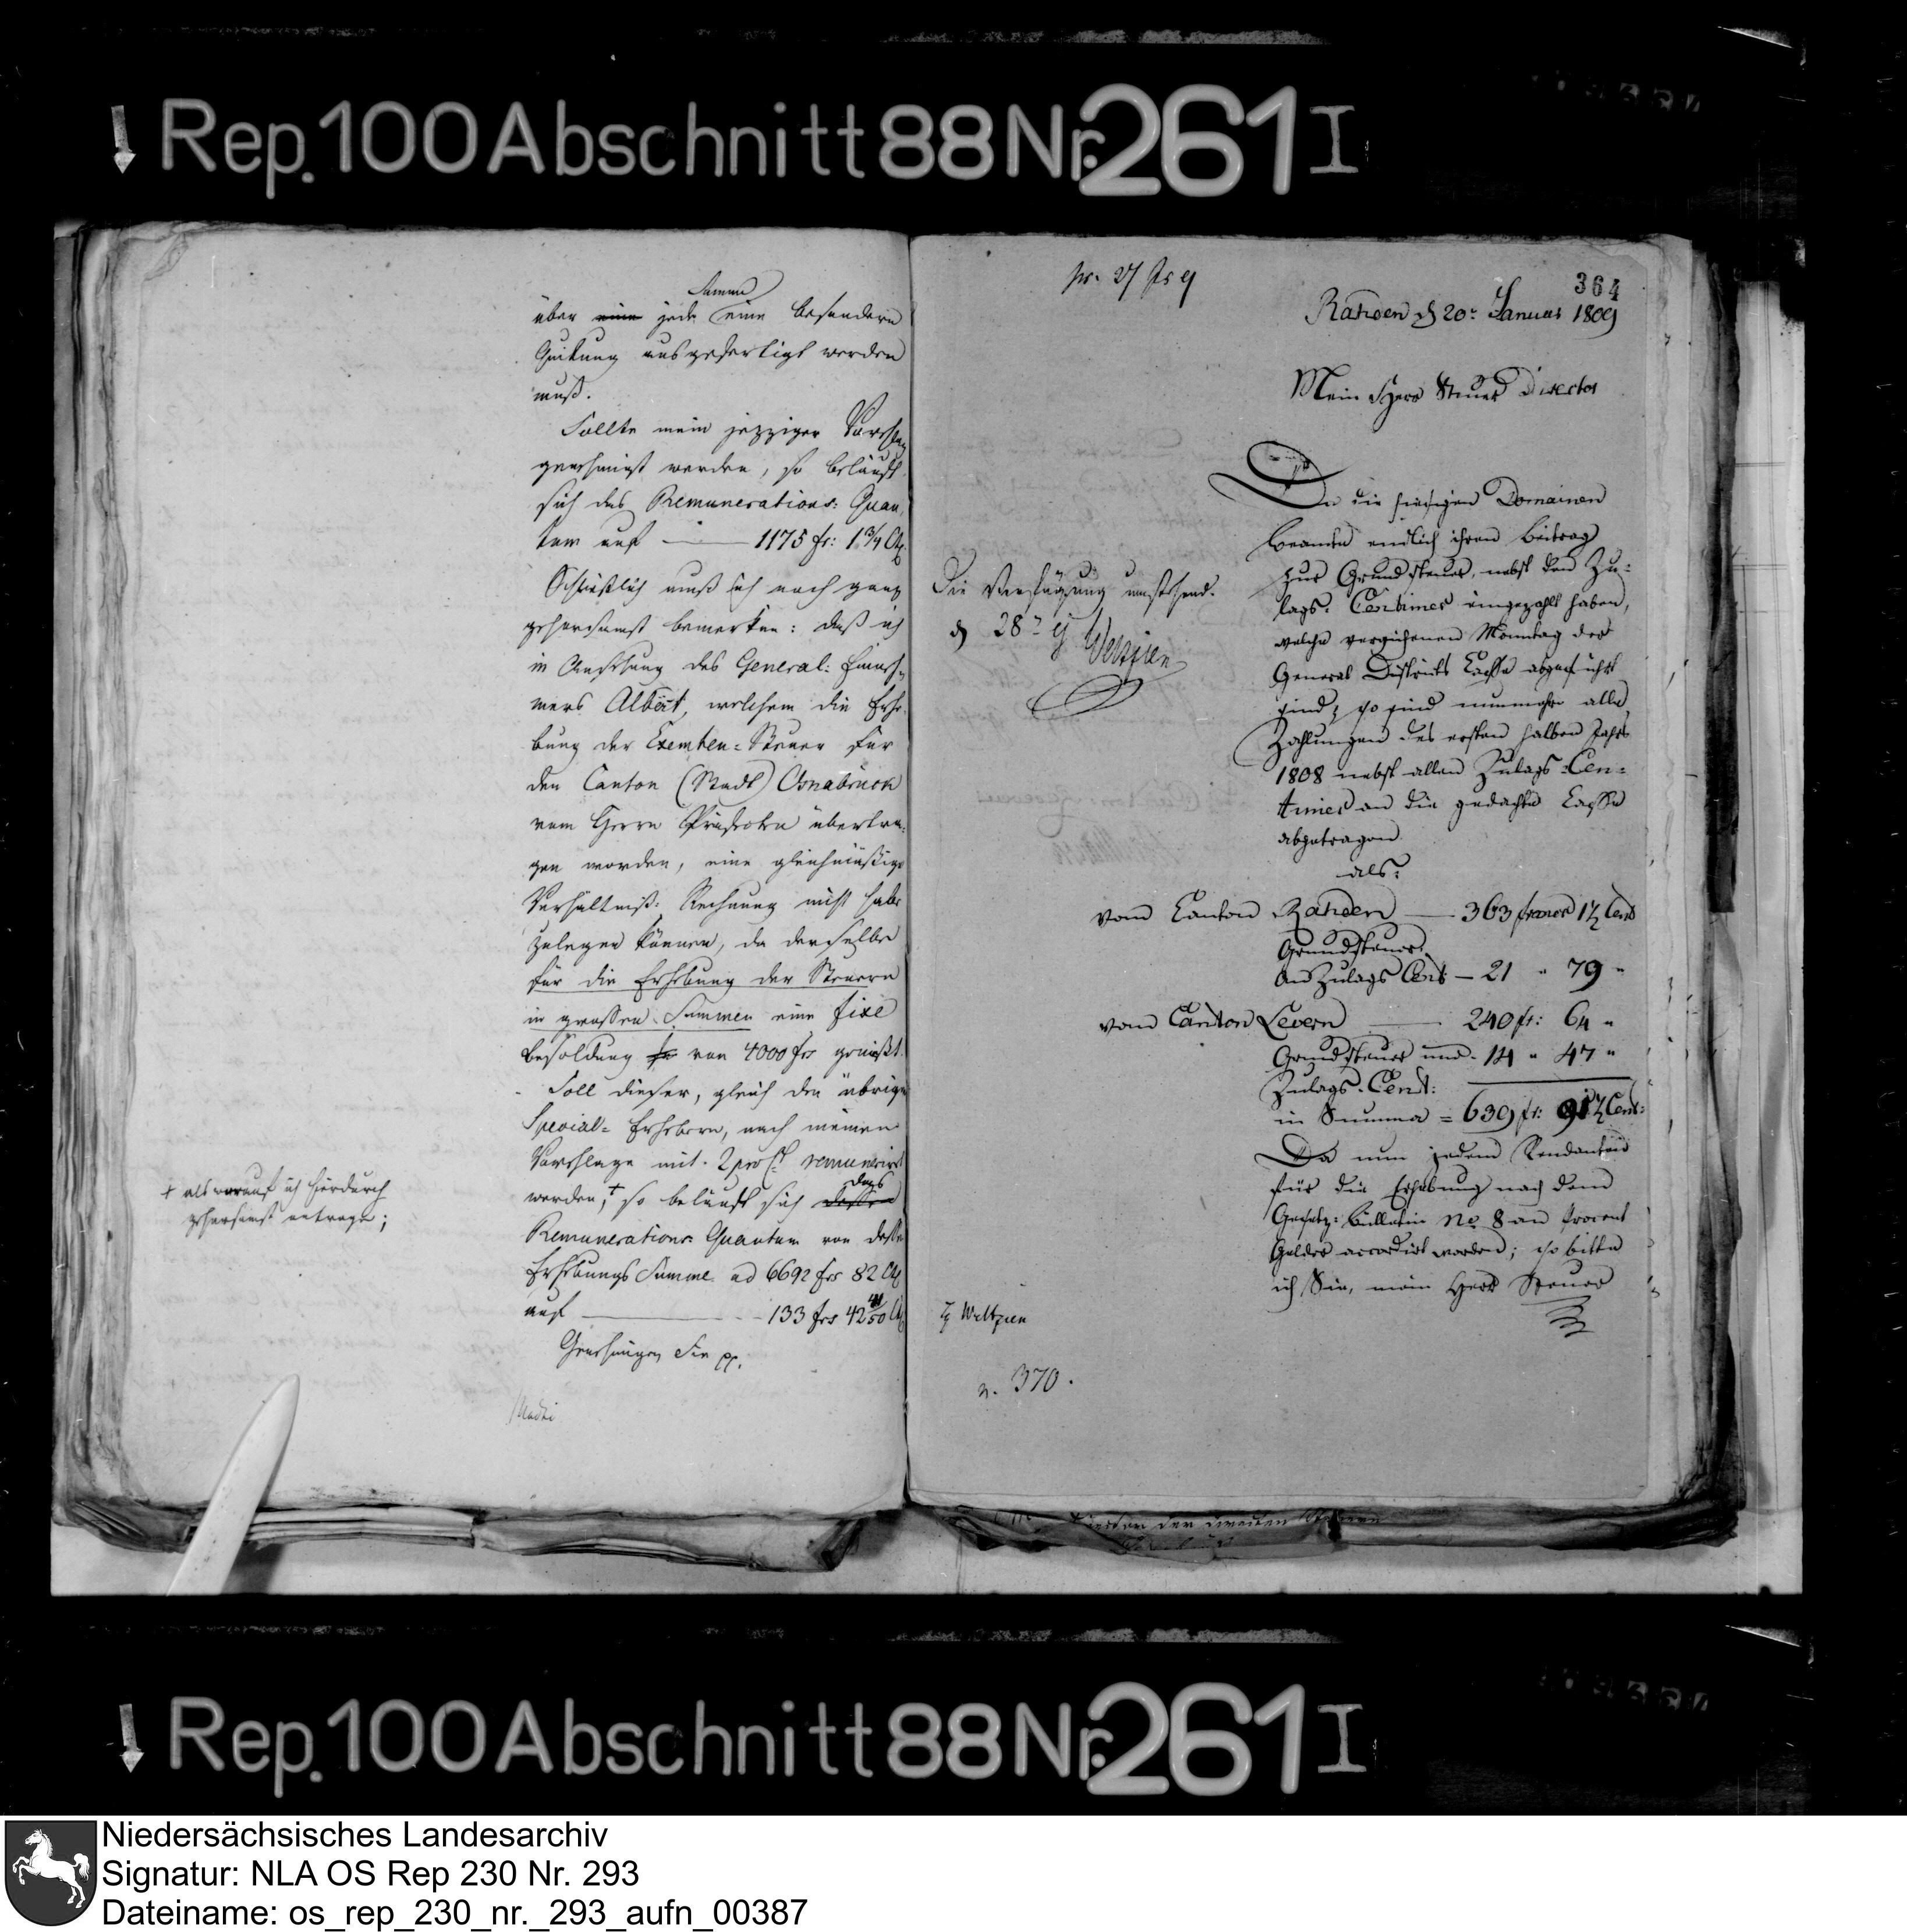 Rep. 100 Abschnitt 88 Nr. 261 I
Summe
über eine jede eine besondere
Quitung ausgefertigt werden
muß.
Sollte mein jezziger Vorschlag
genehmigt werden, so beläuft
sich das Remunerations: Quan
tum auf — 1175 fr: 1 3/4 Ct
Schließlich muß ich noch ganz
gehorsamst bemerken: daß ich
in Ansehung des General: Einneh
mers Albert, welchem die Erhe
bung der Exemten-Steuer für
den Canton (Stadt) Osnabrück
vom Herrn Präfecten übertra
gen worden, eine gleichmäßige
Verhältniß: Rechnung nicht habe
zulegen können, da derselbe
für die Erhebung der Steuern
in grossen Summen eine fixe
Besoldung von 4000 frs genießt.
Soll dieser, gleich den übrigen
Special- Erhebern, nach meinem
Vorschlage mit 2 pro Ct remunerirt
werden,+ so beläuft sich dessen das
Remunerations: Quantum von der
Erhebungs Summe ad 6692 frs 82 Ct
auf — 133 frs 42 41/50 Ct
Genehmigen Sie pp.
+ als worauf ich hierdurch
gehorsamst antrage;
364
Rahden d 20t Januar 1809
Mein Herr Steuer Director
Da die hiesigen Domainen
Beamte endlich ihren Beitrag
zur Grundsteuer, nebst den Zu-
lags: Centimes eingezahlt haben,
welche vergichenen Monntag der
General Districts Casse abgeführt
sind; so sind nunmehro alle
Zahlungen des ersten halben Jahrs
1808 nebst allen Zulags-Cen-
timen an die gedachte Casse
abgetragen
als:
vom Canton Rahden — 363 francs 1½ Cent
Grundsteuer
an Zulags Cent — 21 " 79 "
vom Canton Levern — 240 fr: 64 "
Grundsteuer und - 14 " 47 "
Zulags-Cent:
in Summa = 639 fr: 91½ Cent:
Da nun jedem Rendanten
für die Erhebung nach dem
Gesetz: Bulletin No 8 an Procent
Gelder accordirt worden; so bitte
ich Sie, mein Herr Steuer
Die Verfügung umstehend.
d 28t
Weltzien
Weltzien
n. 370.
Rep. 100 Abschnitt 88 Nr. 261 I
Niedersächsisches Landesarchiv
Signatur: NLA OS Rep 230 Nr. 293
Dateiname: os_rep_230_nr._293_aufn_00387